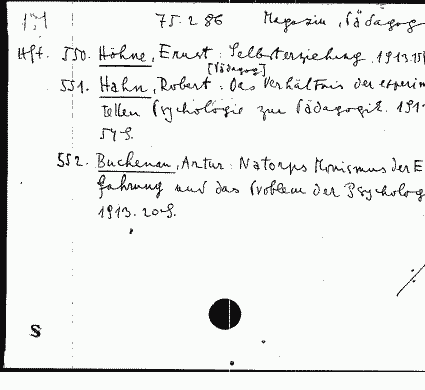 75. 2 86 Magazin, Pädagog
Hft. 550. Höhne, Ernst: Selbsterziehung. 1913. 15
[Pädagog]
551. Hahn, Robert: Das Verhältnis der experim
tellen Psychologie zur Pädagogik. 191
54 S.
552. Buchenau, Artur: Natorps Monismus der E
fahrung und das Problem der Psycholog
1913. 20 S.
S